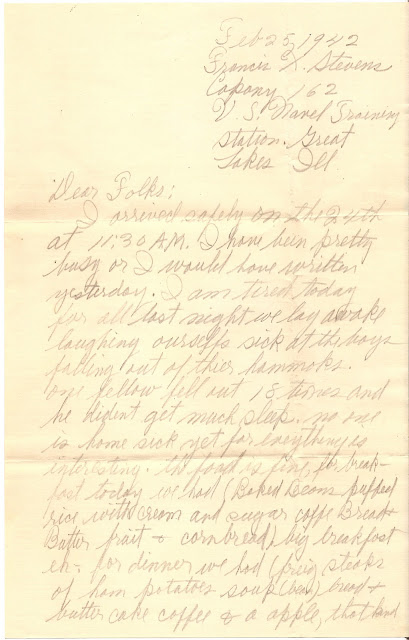 Feb 25, 1942
Francis X. Stevens
Copony 162
U. S. Navel Training
Station. Great
Lakes Ill.
Dear Folks;
I arrived safely on the 24th
at 11:30 A.M. I have been pretty
busy or I would have written
yesterday. I am tired today
for all last night we lay awake
laughing ourselfs sick at th boys
falling out of thier hammoks.
one fellow fell out 18 times and
he dident get much sleep. no one
is home sick yet for everything is
interesting. th food is fine, for break-
fast today we had (Baked Beans puffed
rice with cream and sugar coffe Bread +
Butter fruit + cornbread) big breakfast
eh- for dinner we had (frieg steaks
of ham potatoes soup (bean) bread +
butter cake coffee & a apple, that